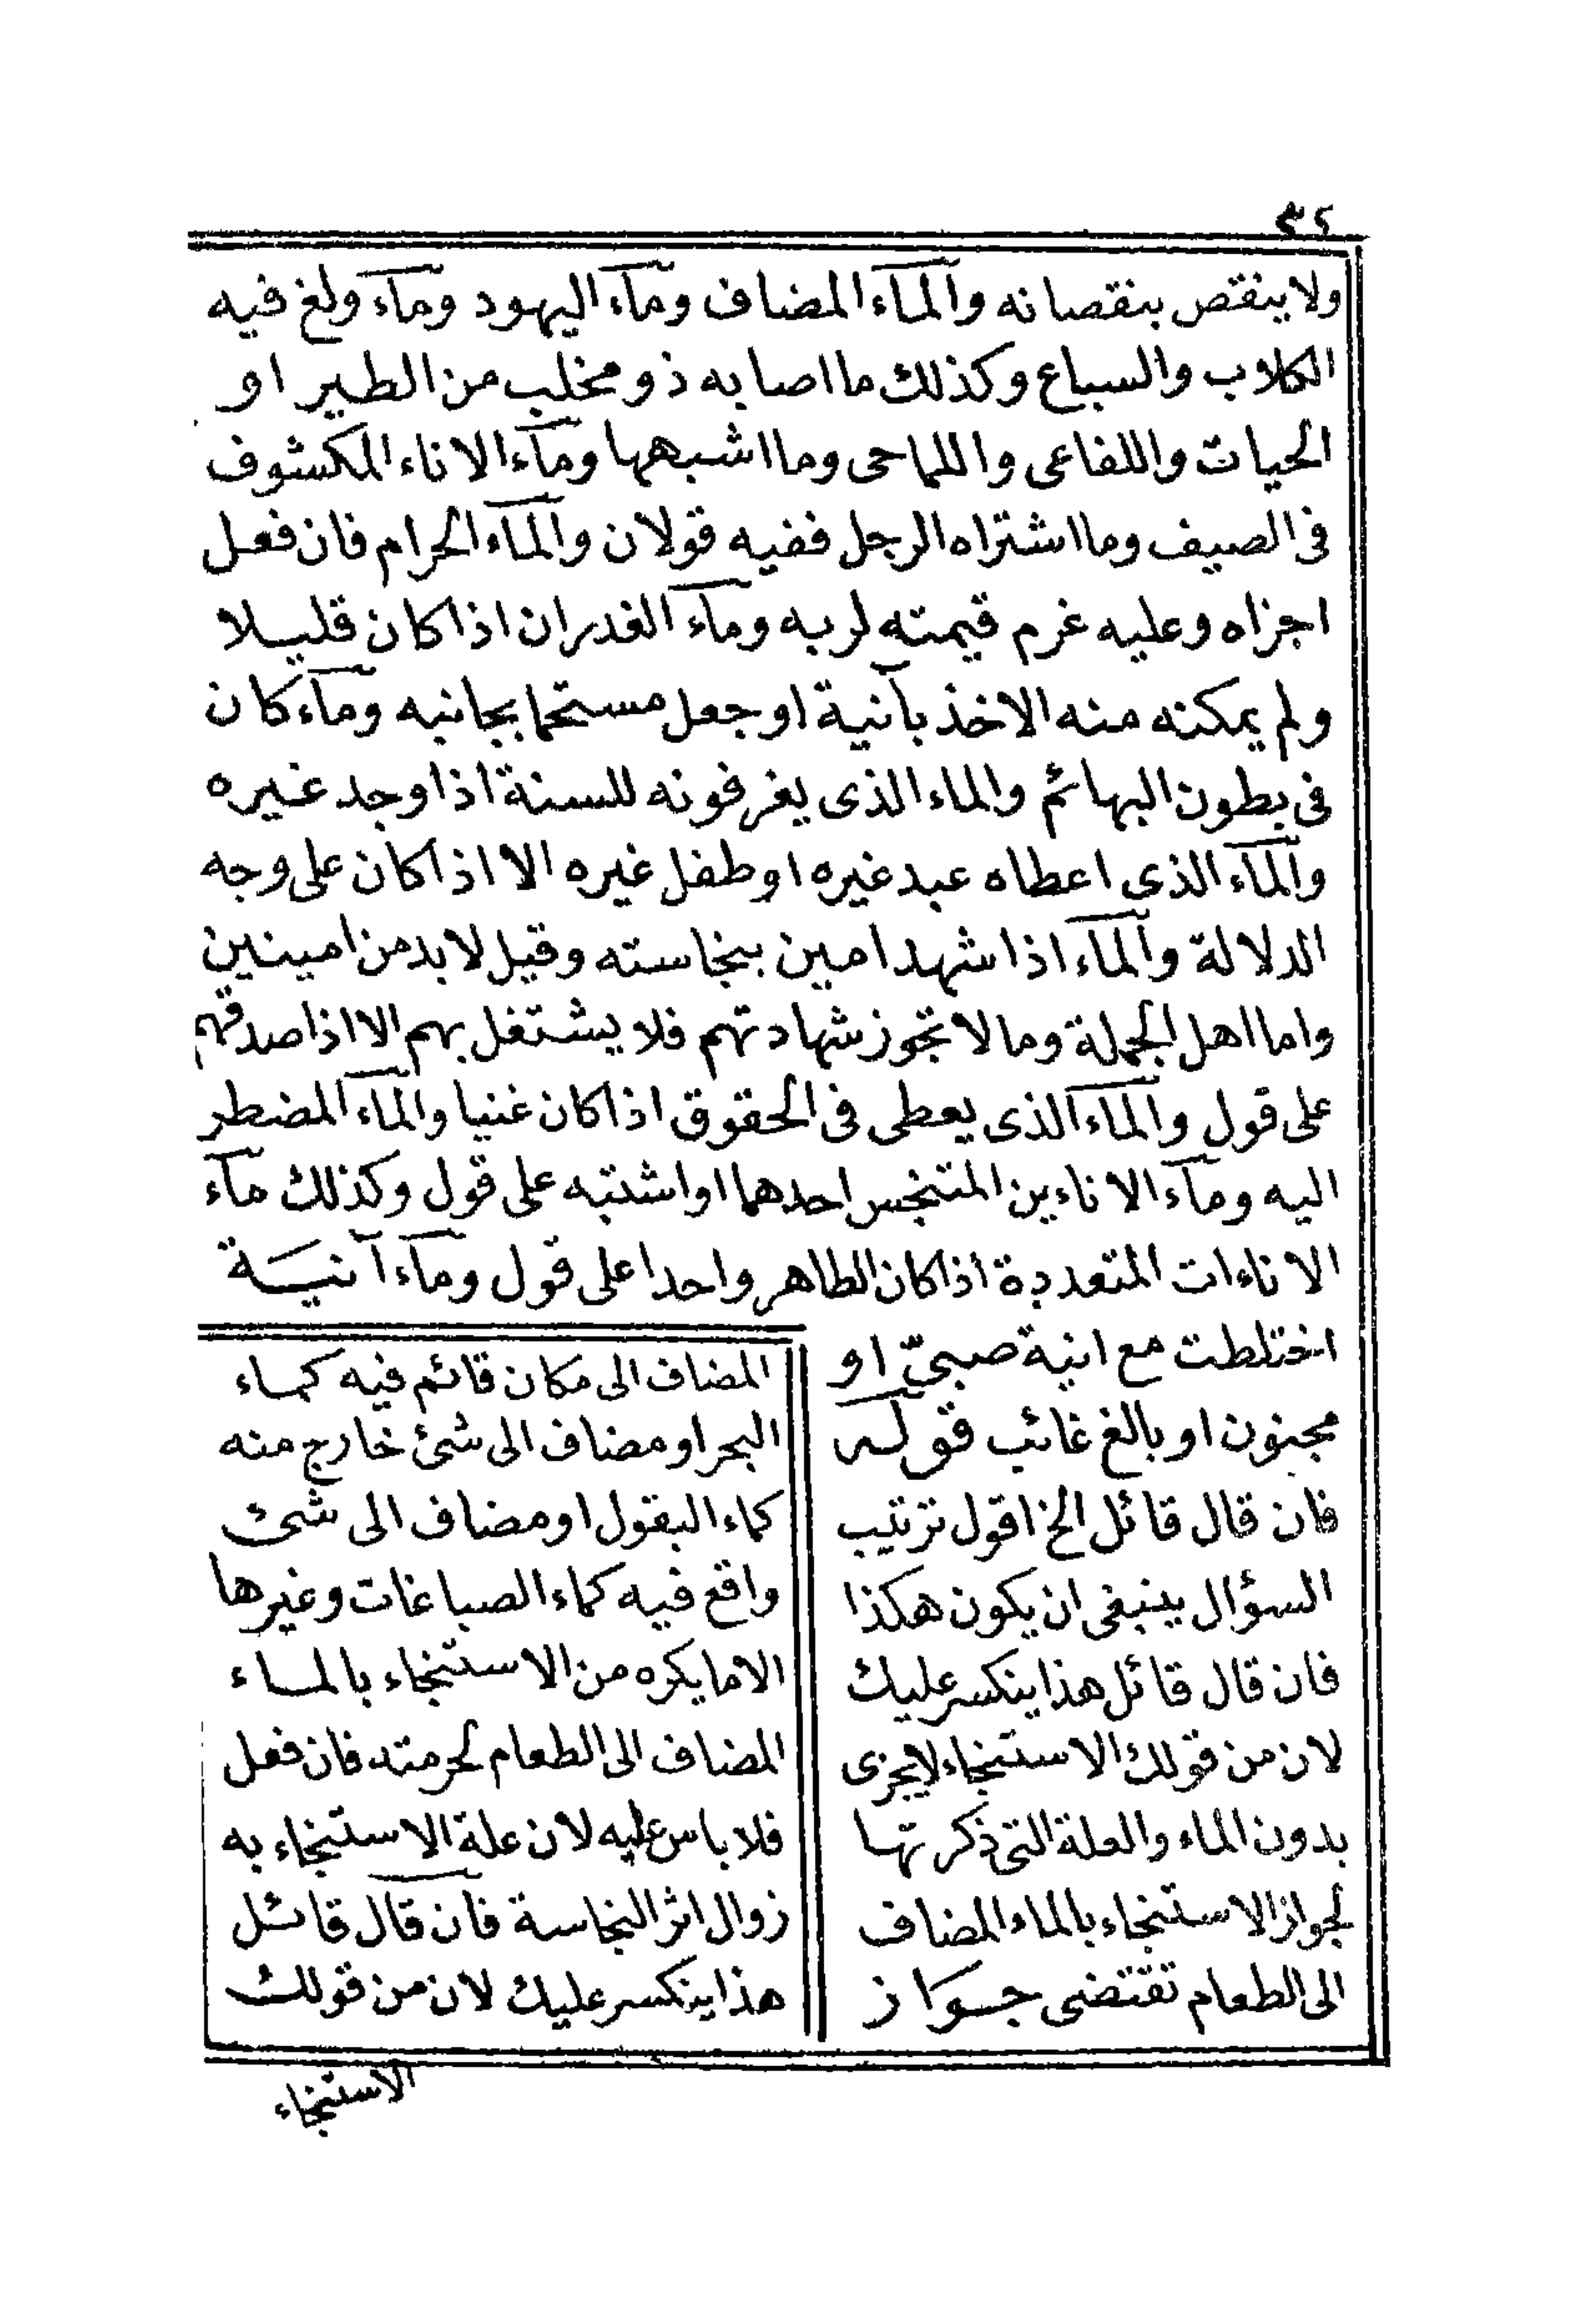 ٣٤
ولا ينقص بنقصانه والمآء المضاف ومآء اليهود ومآء ولغ فيه
الكلاب والسباع وكذلك ما اصابه ذو مخلب من الطير او
الحيات واللفاعى واللماحى وما اشبهها ومآء الاناء المكشوف
فى الصيف وما اشتراه الرجل ففيه قولان والمآء الحرام فان فعل
اجزاه وعليه غرم قيمته لربه ومآء الغدران اذا كان قليلا
ولم يمكنه منه الاخذ بآنية او جعل مستحما بجانبه ومآء كان
فى بطون البهائم والماء الذى يغرفونه للسنة اذا وجد غيره
والمآء الذى اعطاه عبد غيره او طفل غيره الا اذا كان على وجه
الدلالة والمآء اذا شهد امين بنجاسته وقيل لا بد من امينين
واما اهل الجملة وما لا تجوز شهادتهم فلا يشتغل بهم الا اذا صدقهم
على قول والمآء الذى يعطى فى الحقوق اذا كان غنيا والمآء المضطر
اليه ومآء الاناءين المتنجس احدهما او اشتبه على قول وكذلك مآء
الاناءات المتعددة اذا كان الطاهر واحدا على قول ومآء آنية
اختلطت مع انية صبىّ او
مجنون او بالغ غائب قوله
فان قال قائل الخ اقول ترتيب
السؤال ينبغى ان يكون هكذا
فان قال قائل هذا ينكسر عليك
لان من قولك الاستنجاء لا يجزى
بدون الماء والعلة التى ذكرتها
لجواز الاستنجاء بالماء المضاف
الى الطعام تقتضى جواز
المضاف الى مكان قائم فيه كماء
البحر او مضاف الى شئ خارج منه
كماء البقول او مضاف الى شئ
واقع فيه كماء الصباغات وغيرها
الا ما يكره من الاستنجاء بالماء
المضاف الى الطعام لحرمته فان فعل
فلا باس عليه لان علة الاستنجاء به
زوال اثر النجاسة فان قال قائل
هذا ينكسر عليك لان من قولك
الاستنجاء